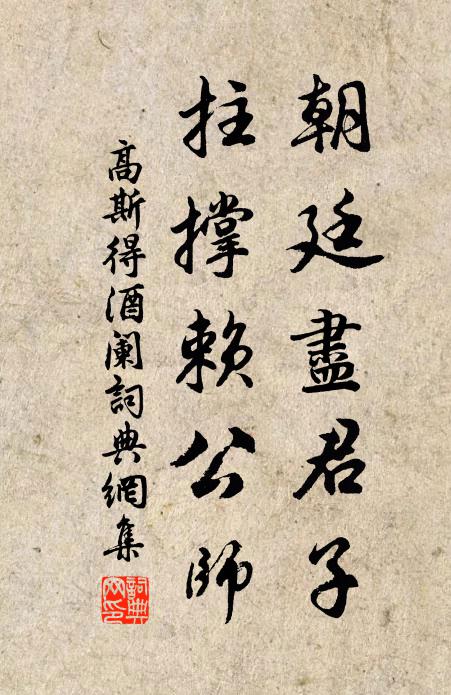 朝廷盡君子
拄撐賴公師
高斯得酒闌詞典網集
詞典網印